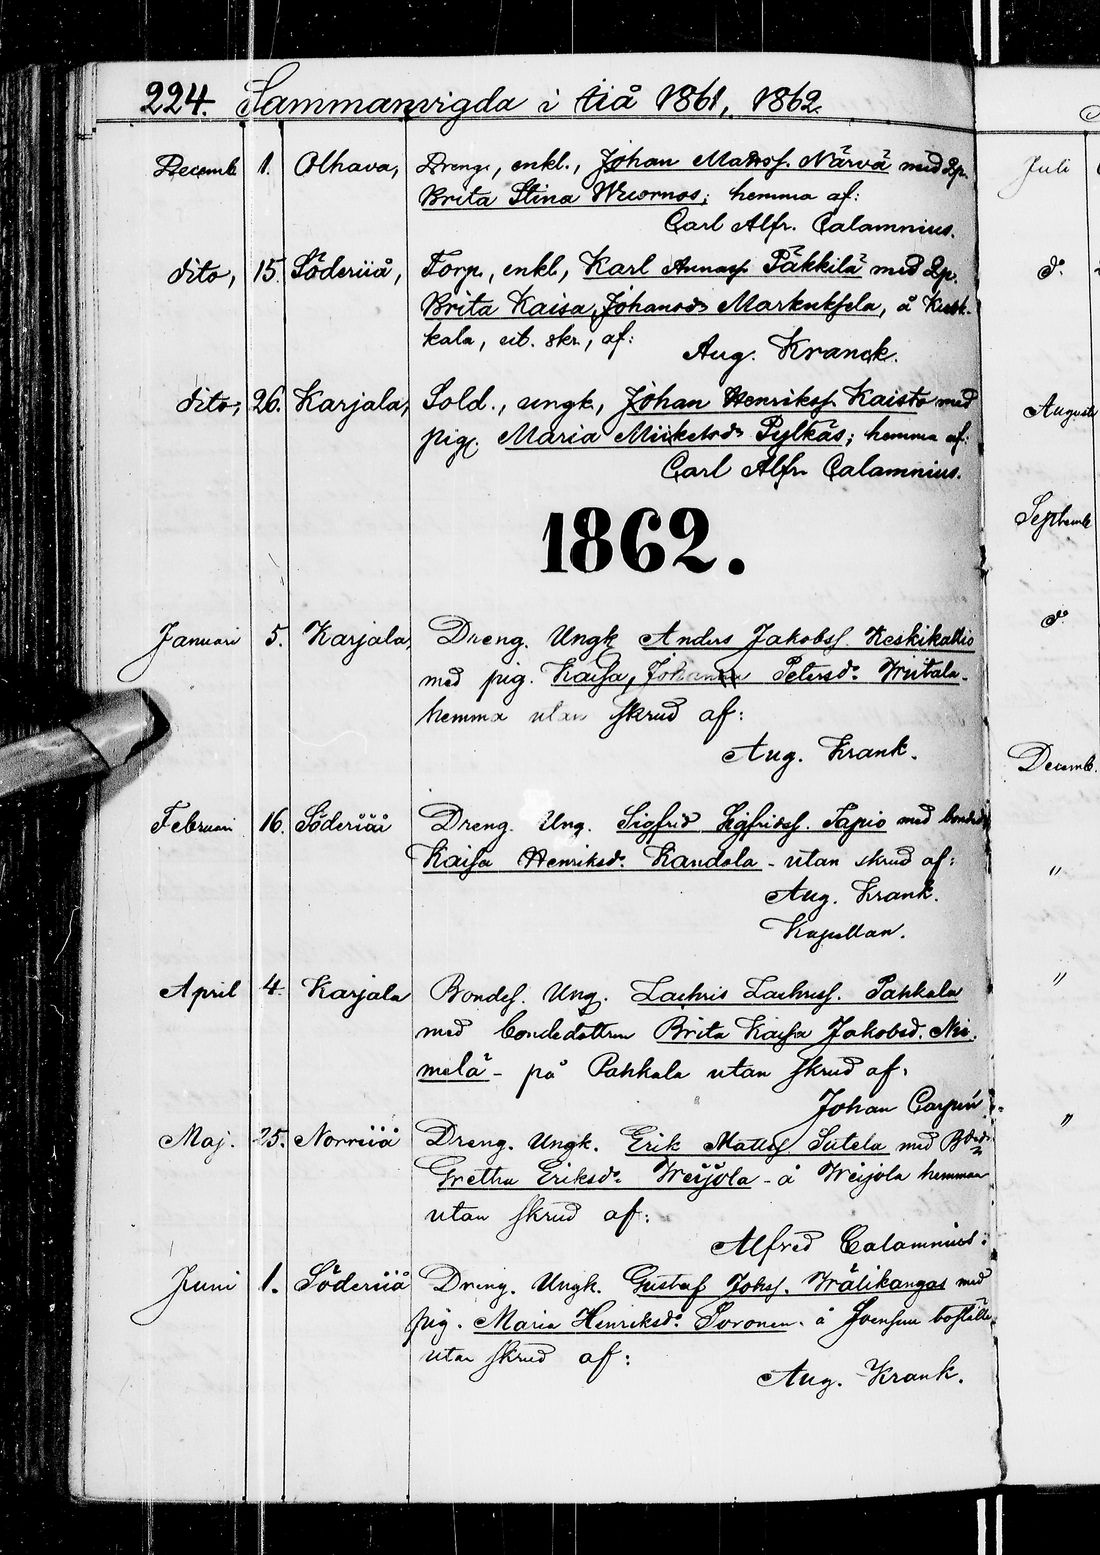 224. Sammanvigda i Iiå 1861, 1862.
Decemb 1. Olhava, Dreng., enkl., Johan Mattss. Närvä med Qp.
Brita Stina Wuornos; hemma af:
Carl Alfr. Calamnius.
dito, 15. Söderiiå, Torp., enkl., Karl Annass Päkkilä med Qp.
Brita Kaisa Johansdr Markuksela, å
kala, ut. skr., af:
Aug. Kranck.
dito, 26. Karjala, Sold., ungk., Johan Henrikss. Kaisto med
pig. Maria Miikelsdr Pylkäs; hemma af:
Carl Alfr. Calamnius.
1862.
Januari 5. Karjala, Dreng. Ungk Anders Jakobss. Keskikallio
med pig. Kaisa, Johanna Petersdr. Wiitala-
hemma utan skrud af:
Aug. Krank.
Februari 16. Söderiiå Dreng. Ung. Sigfrid Sigfridss. Tapio med
Kaisa Henriksdr. Kandola - utan skrud af:
Aug. Krank.
Kapellan.
April 4. Karjala Bondes. Ung. Zachris Zachriss. Pahkala
med bondedottren Brita Kaisa Jakobsd. Nie-
melä - på Pahkala utan skrud af:
Johan Carpén
Maj. 25. Norriiå Dreng. Ungk. Erik Matts Sutela med
Gretha Eriksdr. Weijola - å Weijola hemman
utan skrud af:
Alfred Calamnius:
Juni 1. Söderiiå Dreng. Ungk. Gustaf Johss. Wälikangas med
pig. Maria Henriksdr. Soronen. å Svensuu boställe
utan skrud af:
Aug. Krank.
Juli
do
Augusti
Septemb
do
Decemb.
"
"
"